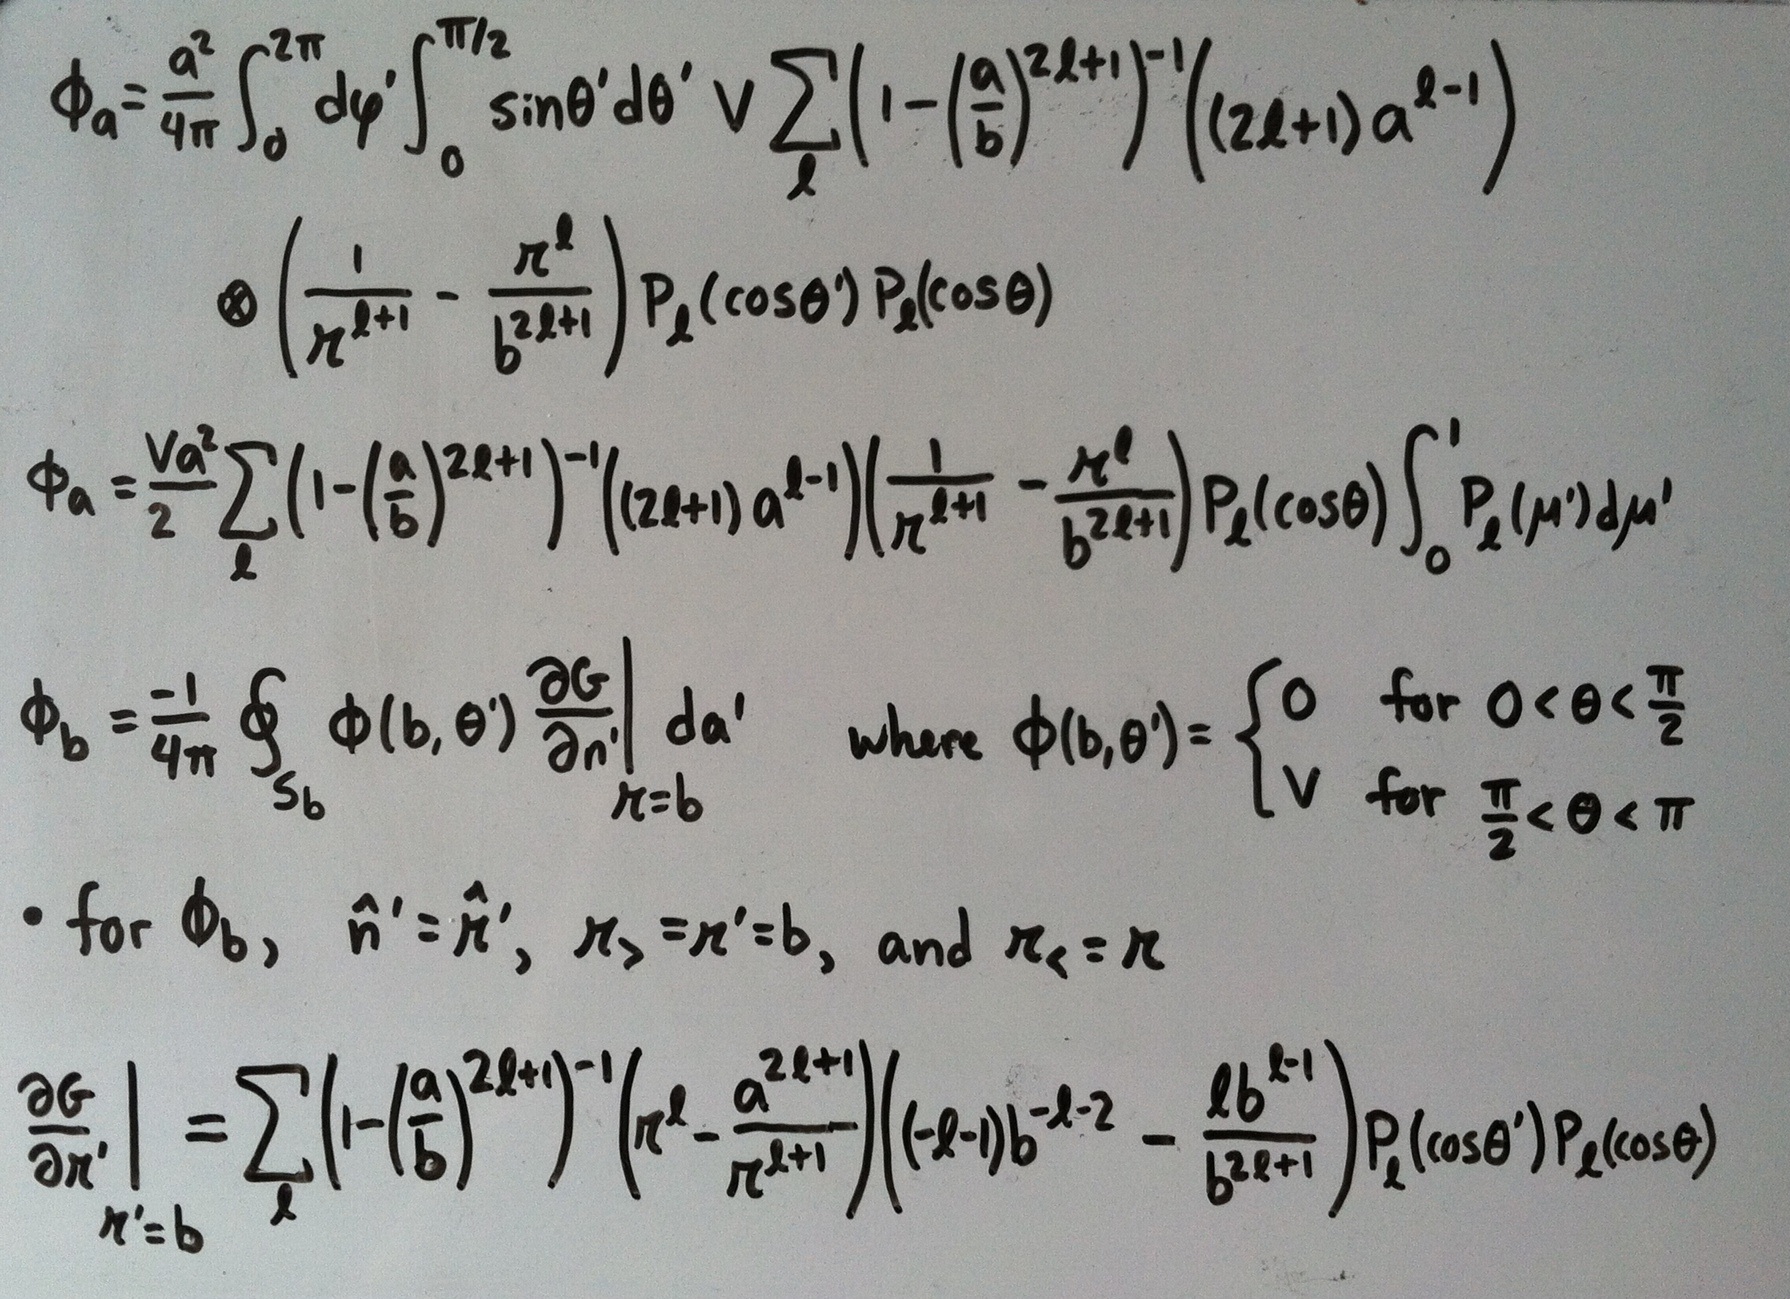 ϕₐ = a²/4π ∫₀^{2π} dφ' ∫₀^{π/2} sinθ'dθ' V ∑_ℓ (1-(a/b)^{2ℓ+1})^{-1} ((2ℓ+1) a^{ℓ-1})
⊗ (1/r^{ℓ+1} - r^ℓ/b^{2ℓ+1}) P_ℓ(cosθ') P_ℓ(cosθ)
ϕₐ = Va²/2 ∑_ℓ (1-(a/b)^{2ℓ+1})^{-1} ((2ℓ+1) a^{ℓ-1}) (1/r^{ℓ+1} - r^ℓ/b^{2ℓ+1}) P_ℓ(cosθ) ∫₀^1 P_ℓ(μ')dμ'
ϕ_b = -1/4π ∮_{S_b} ϕ(b,θ') ∂G/∂n'|_{r=b} da' where ϕ(b,θ') = {0 for 0<θ<π/2
V for π/2<θ<π
• for ϕ_b, n̂'=r̂', r_>=r'=b, and r_<=r
∂G/∂r'|_{r'=b} = ∑_ℓ (1-(a/b)^{2ℓ+1})^{-1} (r^ℓ - a^{2ℓ+1}/r^{ℓ+1}) ((-ℓ-1)b^{-ℓ-2} - ℓb^{ℓ-1}/b^{2ℓ+1}) P_ℓ(cosθ') P_ℓ(cosθ)